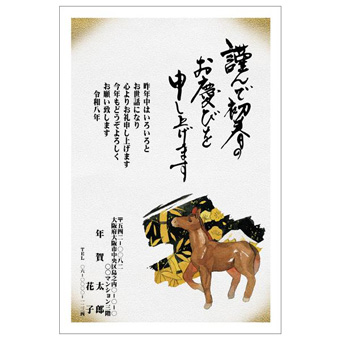 謹んで初春の
お慶びを
申し上げます
昨年中はいろいろと
お世話になり
心よりお礼申し上げます
今年もどうぞよろしく
お願い致します
令和八年
〒五四二-〇〇八二
大阪府大阪市中央区島之内〇-〇-〇
〇〇マンション三階
年賀 太郎
花子